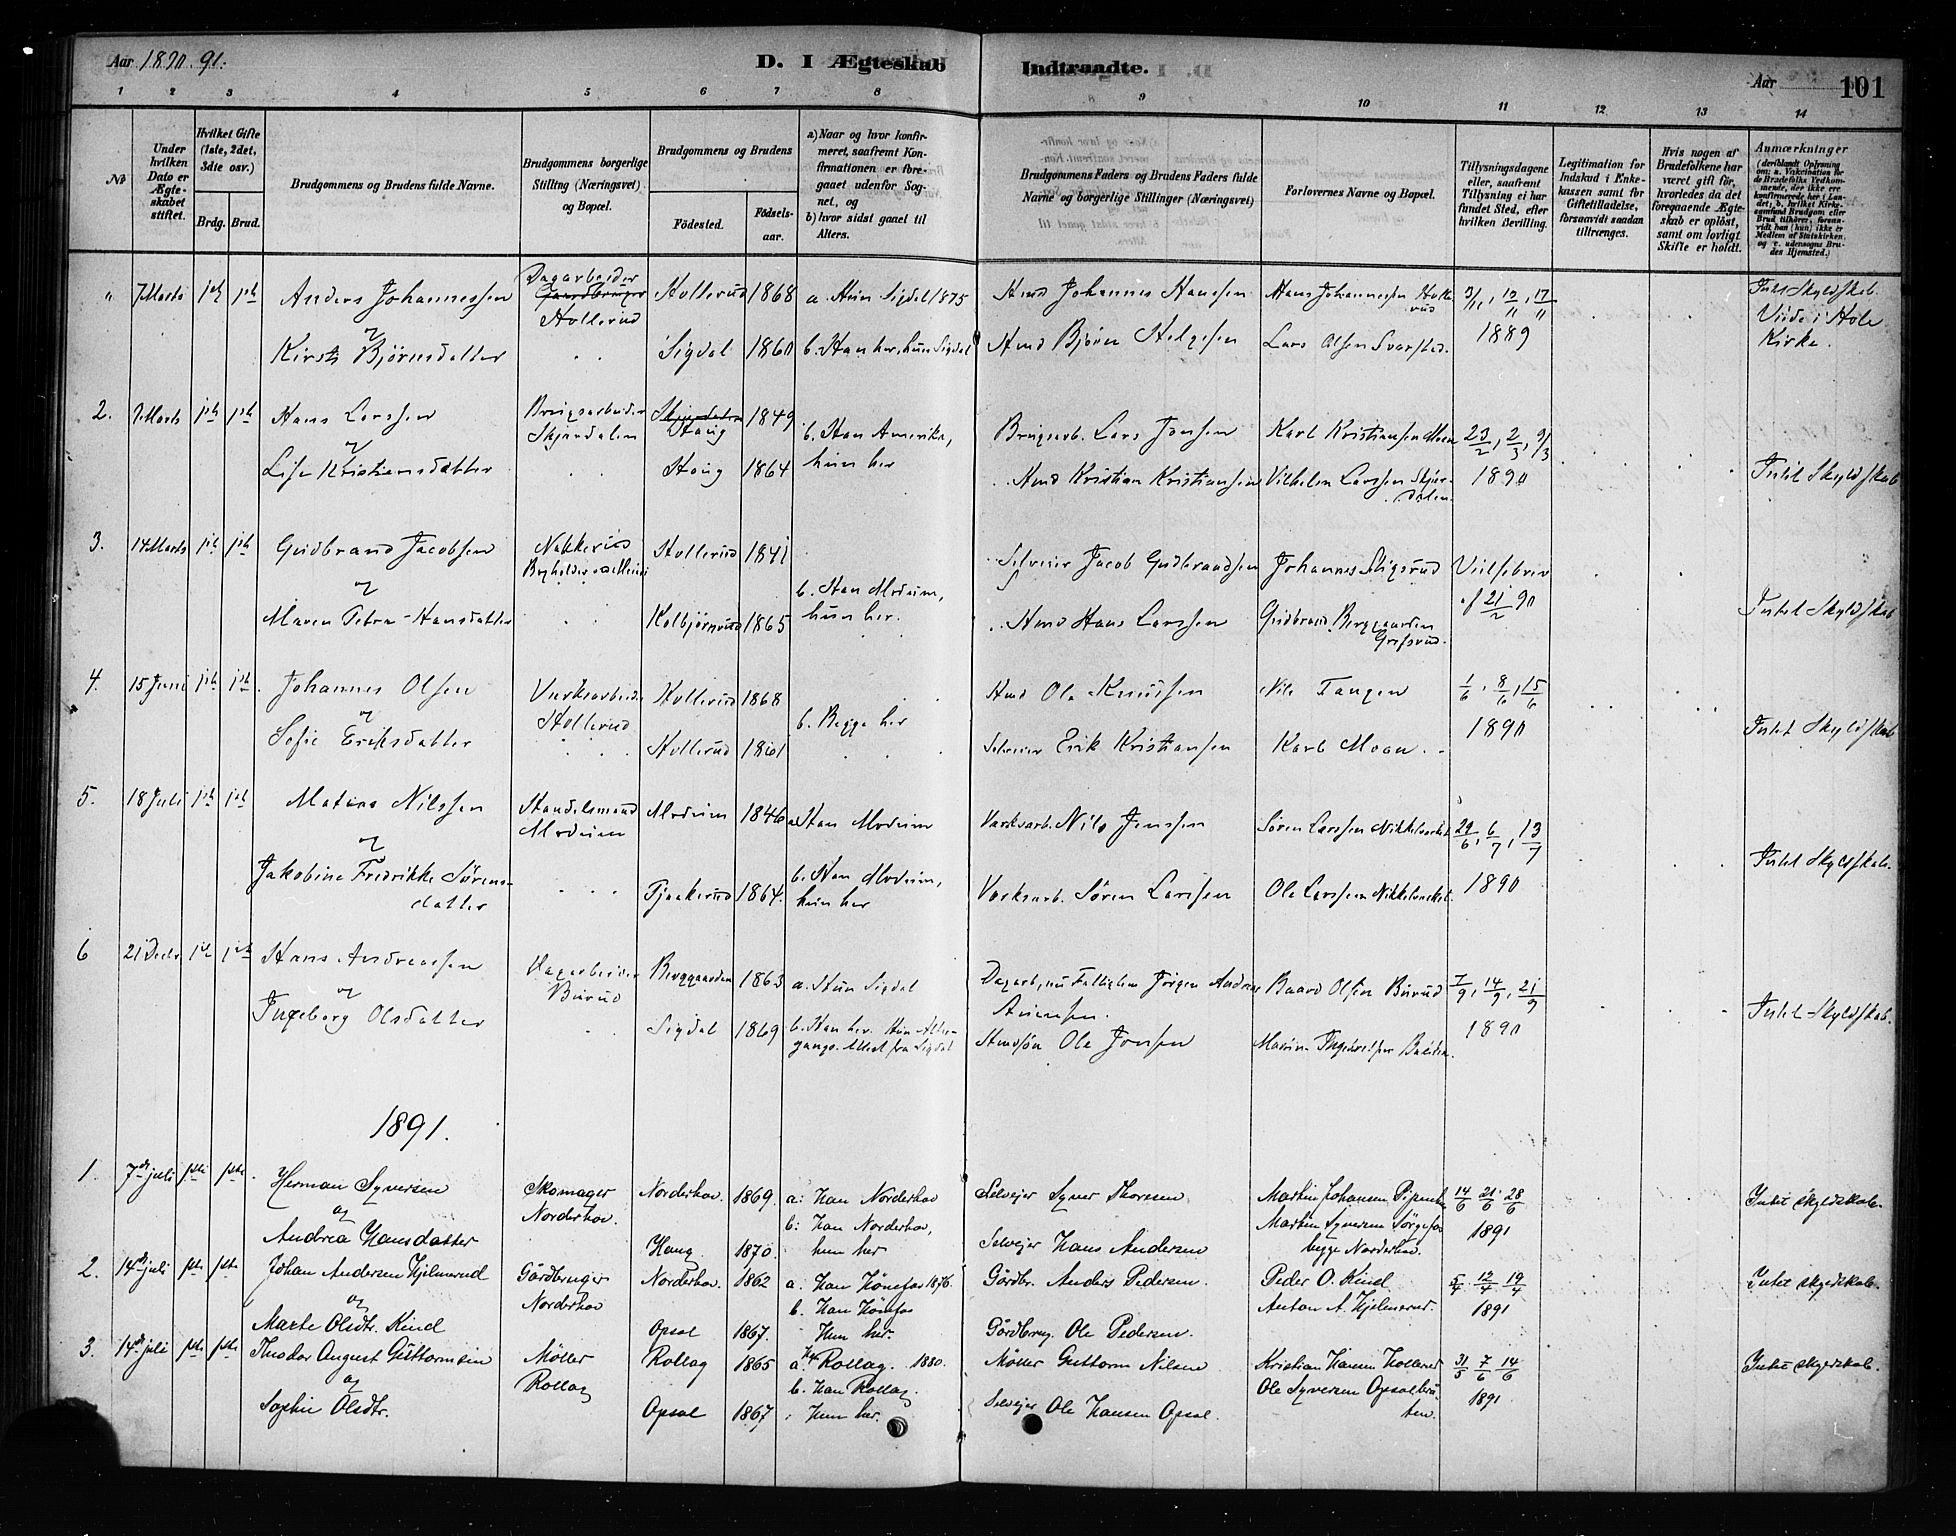 Aar 1890-91.
D. I Ægteskab Indtraadte.
Aar 101
1 2 3 4 5 6 7 8 9 10 11 12 13 14
No
Under hvilken Dato er Ægteskabet stiftet.
Hvilket Gifte (1ste, 2det, 3die osv.)
Brdg. Brud.
Brudgommens og Brudens fulde Navne.
Brudgommens borgerlige Stilling (Næringsvei) og Bopæl.
Brudgommens og Brudens
Fødested.
Fødselsaar.
a) Naar og hvor konfirmeret, saafremt Konfirmationen er foregaaet udenfor Sognet, og
b) hvor sidst gaaet til Alters.
Brudgommens Faders og Brudens Faders fulde Navne og borgerlige Stillinger (Næringsvei)
Forlovernes Navne og Bopæl.
Tillysningsdagene eller, saafremt Tillysning ei har fundet Sted, efter hvilken Bevilling.
Legitimation for Indskud i Enkekassen samt for Giftetilladelse, forsaavidt saadan tiltrænges.
Hvis nogen af Brudefolkene har været gift før, hvorledes da det foregaaende Ægteskab er opløst, samt om lovligt Skifte er holdt.
Anmærkninger
" 7 Marts 1ste 1ste Anders Johannessen Dagarbeider Hollerud 1868 a. Hun Sigdal 1875 Hmd Johannes Hansen Hans Johannessen Hollerud 3/11, 10/11, 17/11 Intet Skyldskab.
og Hollerud 1889 Viede i Hole
Kirsti Bjørnsdatter Sigdal 1860 b. Han her, hun Sigdal Hmd Bjørn Helgesen Lars Olsen Svarstad. Kirke.
2. 7 Marts 1ste 1ste Hans Larssen Brugsarbeider Skjærdalen Haug 1849 b. Han Amerika, hun her Brugsarb. Lars Jonsen Karl Kristiansen Moen 23/2, 2/3, 9/3
og
Lise Kristiansdatter Haug 1864 Hmd Kristian Kristiansen Vilhelm Larssen Skjærdalen 1890 Intet Skyldskab
3. 14 Marts 1ste 1ste Gudbrand Jacobsen Nakkerud Hollerud 1841 Selveier Jacob Gudbrandsen Johannes Stigsrud
og b. Han Modum, hun her. af 21/2 90
Maren Petra Hansdatter Kolbjørnrud 1865 Hmd Hans Larssen Gudbrand Berggaarden Grefsrud. Intet Skyldskab
4. 15 Juni 1ste 1ste Johannes Olsen Verksarbeider Hollerud Hollerud 1868 Hmd Ole Knudsen Nils Tangen 1/6, 8/6, 15/6
og b. Begge her 1890
Sofie Eriksdatter Hollerud 1861 Selveier Erik Kristiansen Karl Moen Intet Skyldskab
5. 18 Juli 1ste 1ste Matias Nilssen Handelsmand Modum Modum 1846 a. Han Modum Værksarb. Nils Jenssen Søren Larssen Nikkelværket 29/6, 6/7, 13/7
og b. Han Modum, hun her
Jakobine Fredrikke Sørensdatter Tjaakerud 1864. Værksarb. Søren Larssen Ole Larssen Nikkelværket. 1890 Intet Skyldskab.
6 21 Decbr 1ste 1ste Hans Andreassen Dagarbeider Burud Berggaarden 1863 a. Hun Sigdal Dagarb., nu Fattiglem Jørgen Andreas Baard Olsen Burud 7/9, 14/9, 21/9
og
Ingeborg Olsdatter Sigdal 1869 b. Han her. Hun Altergangs-Attest fra Sigdal Hmdssøn Ole Jonsen 1890 Intet Skyldskab.
1891.
1. 7de juli 1ste 1ste Herman Syversen Skomager Norderhov. Norderhov. 1869. a: Han Norderhov Selvejer Syver Thoresen Martin Johansen 14/6 21/6 28/6 Intet skyldskab.
og b: Han Norderhov, Martin Syversen Sørgefos
Andrea Hansdatter Haug 1870. hun her Selvejer Hans Andersen begge Norderhov. 1891
2. 14de juli 1ste 1ste Johan Andersen Hjelmerud Gårdbruger Norderhov Norderhov. 1862 a. Han Hönefos 1876. Gårdbr. Anders Pedersen. Peder O. Kind 5/4 12/4 19/4 Intet skyldskab.
og b. Han Hönefos Anton A. Hjelmerud. 1891
Marte Olsdtr. Kind Opsal 1867. Hun her. Gårdbrug. Ole Pedersen.
3. 14de juli 1ste 1ste Theodor August Guttormsen Möller Rollag Rollag 1865 a. Han Rollag. 1880. Möller Guttorm Nilsen Kristian Hansen Hollerud 31/5 7/6 14/6 Intet skyldskab.
og b. Han Rollag. Ole Syversen Opsalbråten.
Sophie Olsdtr. Opsal 1867 Hun her. Selvejer Ole Hansen Opsal. 1891